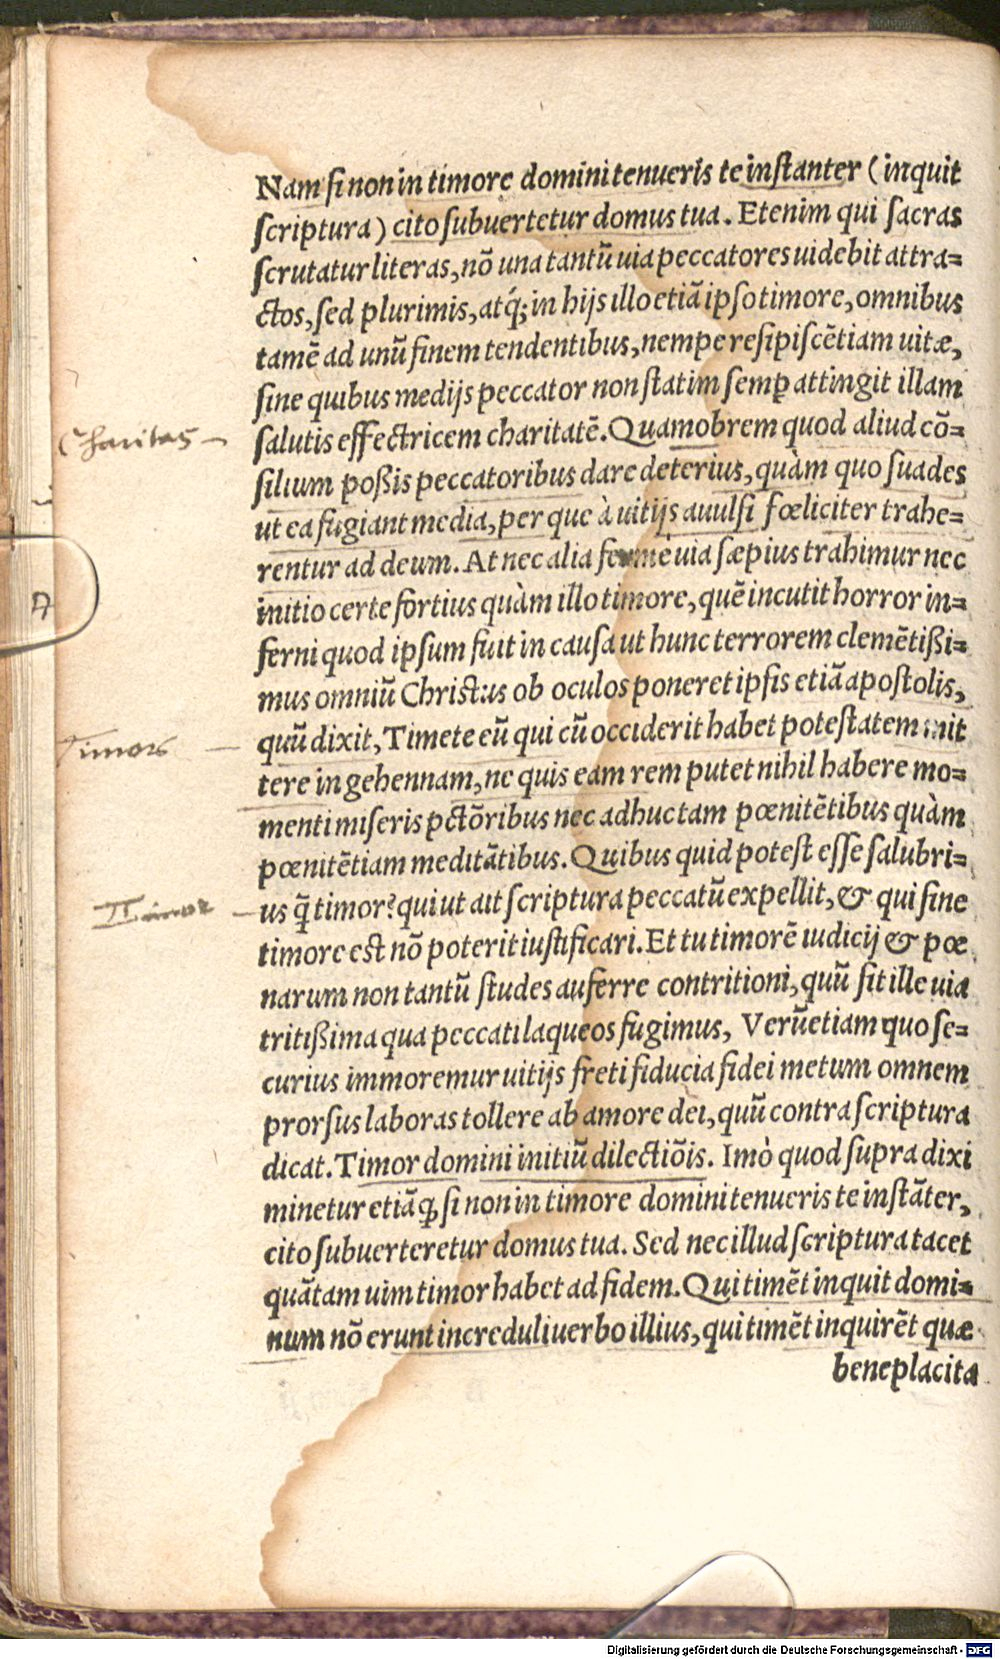 Nam si non in timore domini tenueris te instanter (inquit
scriptura) cito subuertetur domus tua. Etenim qui sacras
scrutatur literas, nõ una tantũ uia peccatores uidebit attra=
ctos, sed plurimis, atq́; in hijs illo etiã ipso timore, omnibus
tamẽ ad unũ finem tendentibus, nempe resipiscẽtiam uitæ,
sine quibus medijs peccator non statim semꝑ attingit illam
Charitas
salutis effectricem charitatẽ. Quamobrem quod aliud cõ=
silium poßis peccatoribus dare deterius, quàm quo suades
ut ea fugiant media, per que à uitijs auulsi fœliciter trahe=
rentur ad deum. At nec alia fermè uia sæpius trahimur nec
initio certe fortius quàm illo timore, quẽ incutit horror in=
ferni quod ipsum fuit in causa ut hunc terrorem clemẽtißi=
mus omniũ Christus ob oculos poneret ipsis etiã apostolis,
Timor
quũ dixit, Timete eũ qui cũ occiderit habet potestatem mit
tere in gehennam, ne quis eam rem putet nihil habere mo=
menti miseris pctõribus nec adhuc tam pœnitẽtibus quàm
pœnitẽtiam meditãtibus. Quibus quid potest esse salubri=
Timor
us q̃ timor? qui ut ait scriptura peccatũ expellit, & qui sine
timore est nõ poterit iustificari. Et tu timorẽ iudicij & pœ
narum non tantũ studes auferre contritioni, quũ sit ille uia
tritißima qua peccati laqueos fugimus, Verũetiam quo se=
curius immoremur uitijs freti fiducia fidei metum omnem
prorsus laboras tollere ab amore dei, quũ contra scriptura
dicat. Timor domini initiũ dilectiõis. Imò quod supra dixi
minetur etiã ꝙ si non in timore domini tenueris te instãter,
cito subuerteretur domus tua. Sed nec illud scriptura tacet
quãtam uim timor habet ad fidem. Qui timẽt inquit domi=
num nõ erunt increduli uerbo illius, qui timẽt inquirẽt quæ
beneplacita
Digitalisierung gefördert durch die Deutsche Forschungsgemeinschaft - DFG